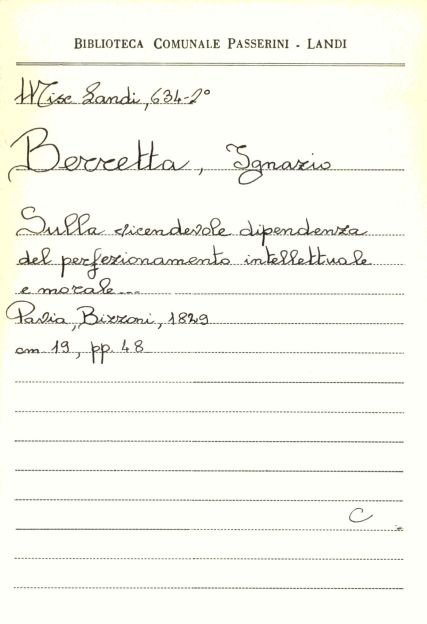 BIBLIOTECA COMUNALE PASSERINI - LANDI
Misc Landi, 634-2°
Berretta, Ignazio
Sulla vicendevole dipendenza
del perfezionamento intellettuale
e morale...
Pavia, Bizzoni, 1829
cm 19, pp. 48
C